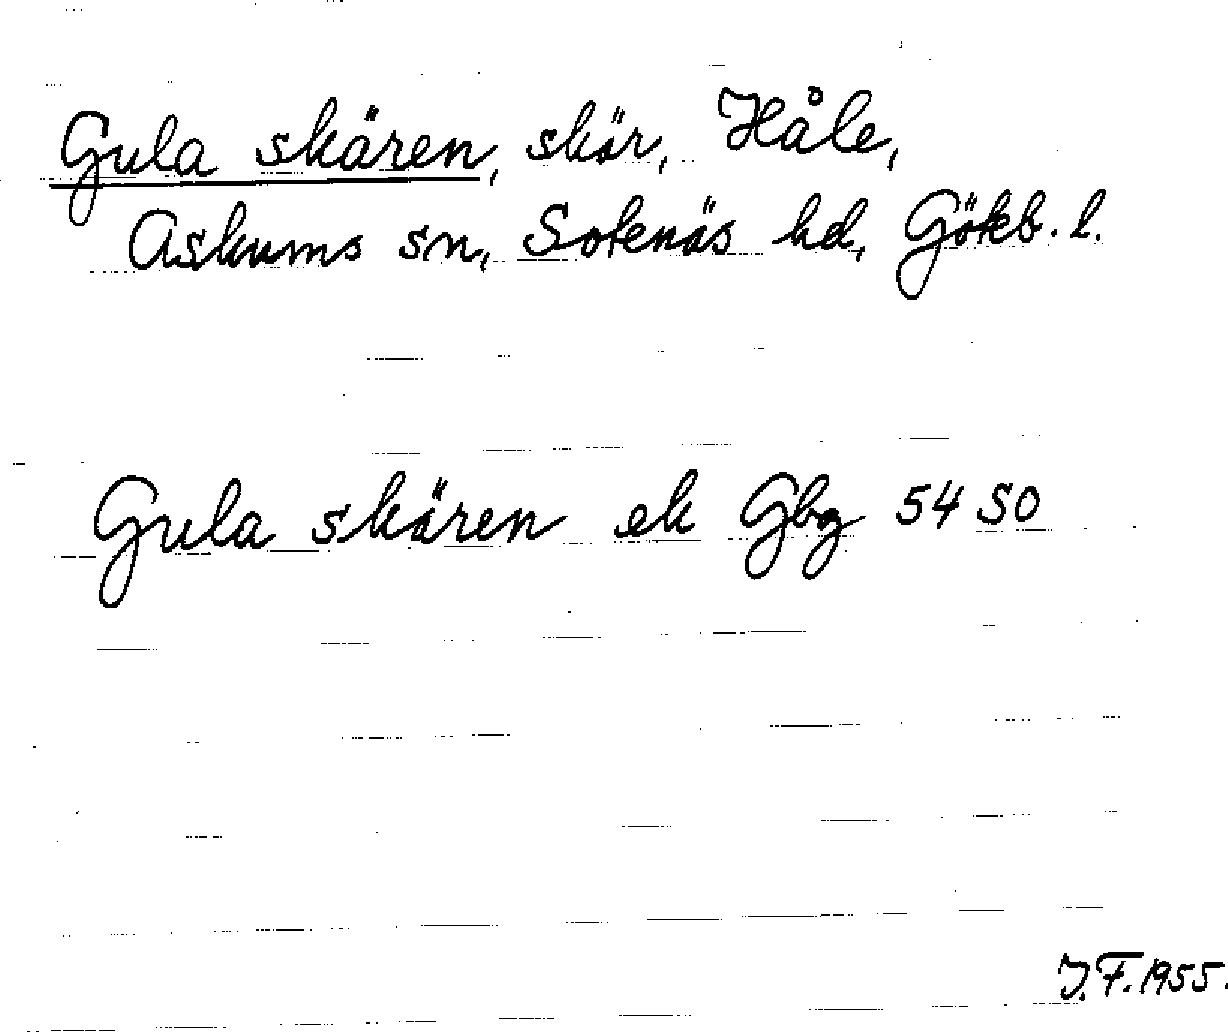 Gula skären, skär, Håle,
Askums sn, Sotenäs hd, Göteb. l.
Gula skären ek Gbg 54 SO
J.F. 1955.